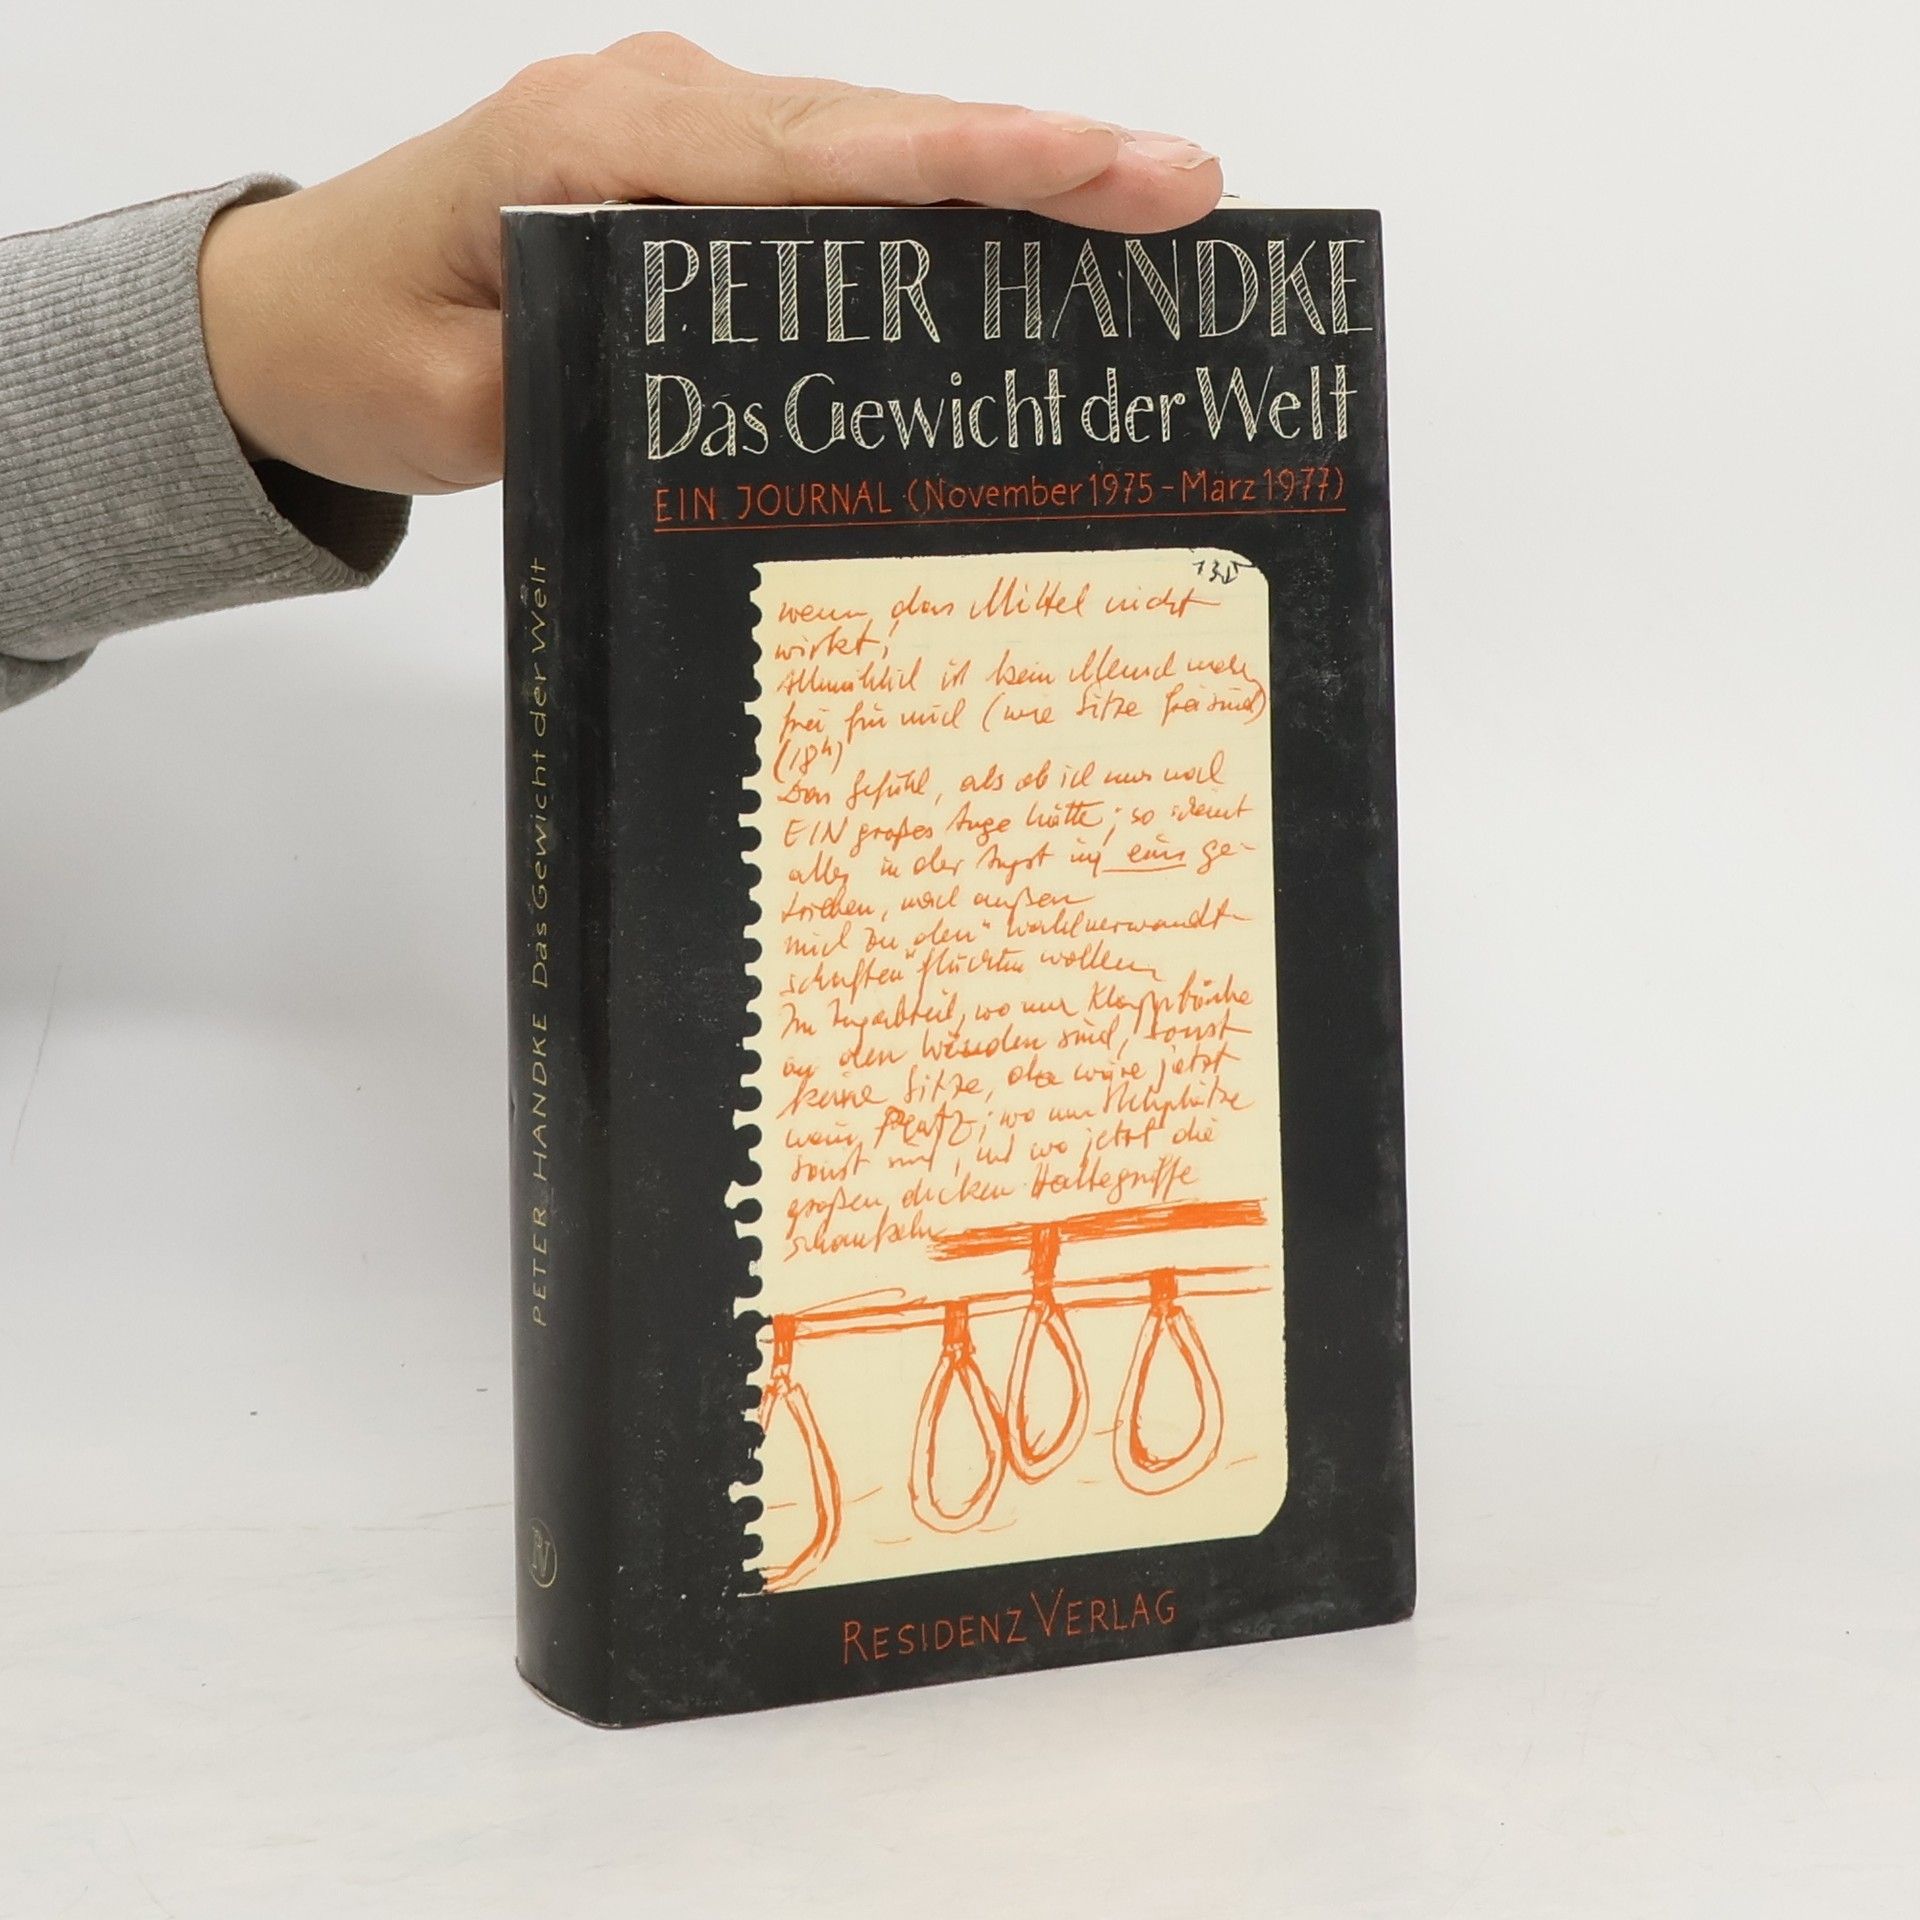 PETER HANDKE
Das Gewicht der Welt
EIN JOURNAL (November 1975 - März 1977)
wenn das Mittel nicht
wirkt;
Allmählich ist kein Mensch mehr
frei für mich (wie Sitze frei sind)
(18h)
Das Gefühl, als ob ich nur noch
EIN großes Auge hätte; so scheint
alles in der Angst in eins ge-
trieben, nach außen
mich zu den "Wahlverwandt-
schaften" flüchten wollen
Im Zugabteil, wo nur Klappbänke
an den Wänden sind, sonst
keine Sitze, da wäre jetzt
mein Platz; wo nur Stehplätze
sonst sind, und wo jetzt die
großen dicken Haltegriffe
schaukeln
RESIDENZ VERLAG
PETER HANDKE Das Gewicht der Welt